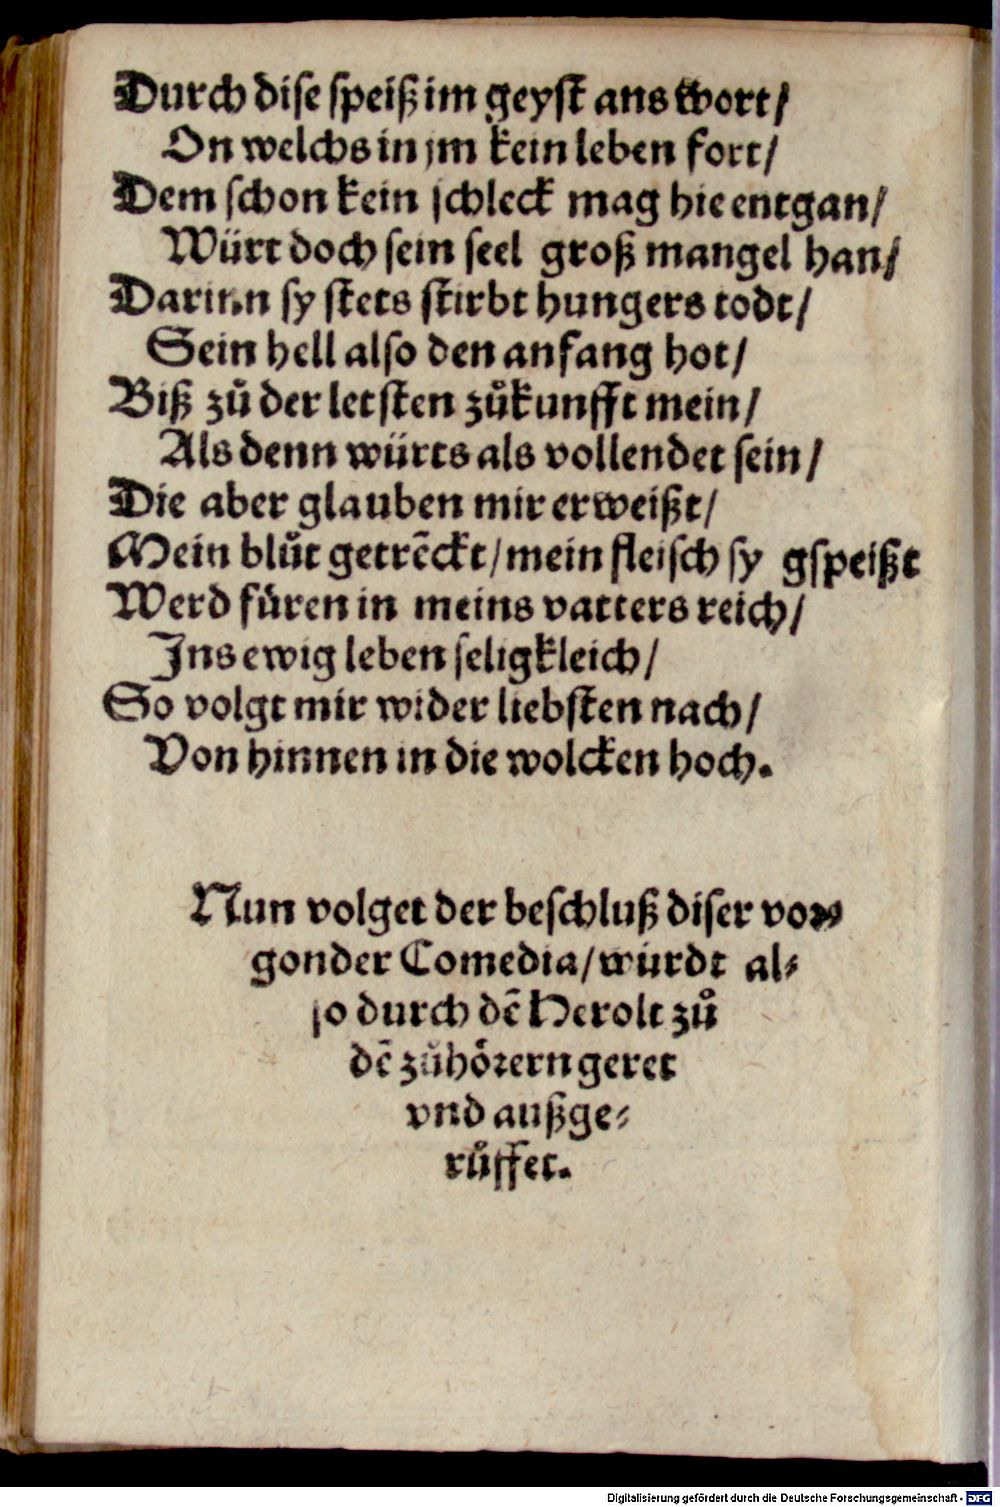 Durch dise speiß im geyst ans wort/
On welchs in jm kein leben fort/
Dem schon kein schleck mag hie entgan/
Würt doch sein seel groß mangel han/
Darinn sy stets stirbt hungers todt/
Sein hell also den anfang hot/
Biß zů der letsten zůkunfft mein/
Als denn würts als vollendet sein/
Die aber glauben mir erweißt/
Mein blůt getrẽckt/mein fleisch sy gspeißt
Werd füren in meins vatters reich/
Ins ewig leben seligkleich/
So volgt mir wider liebsten nach/
Von hinnen in die wolcken hoch.
Nun volget der beschluß diser vor⸗
gonder Comedia/würdt al⸗
so durch dẽ Herolt zů
dẽ zůhörern geret
vnd außge⸗
růffet.
Digitalisierung gefördert durch die Deutsche Forschungsgemeinschaft - DFG